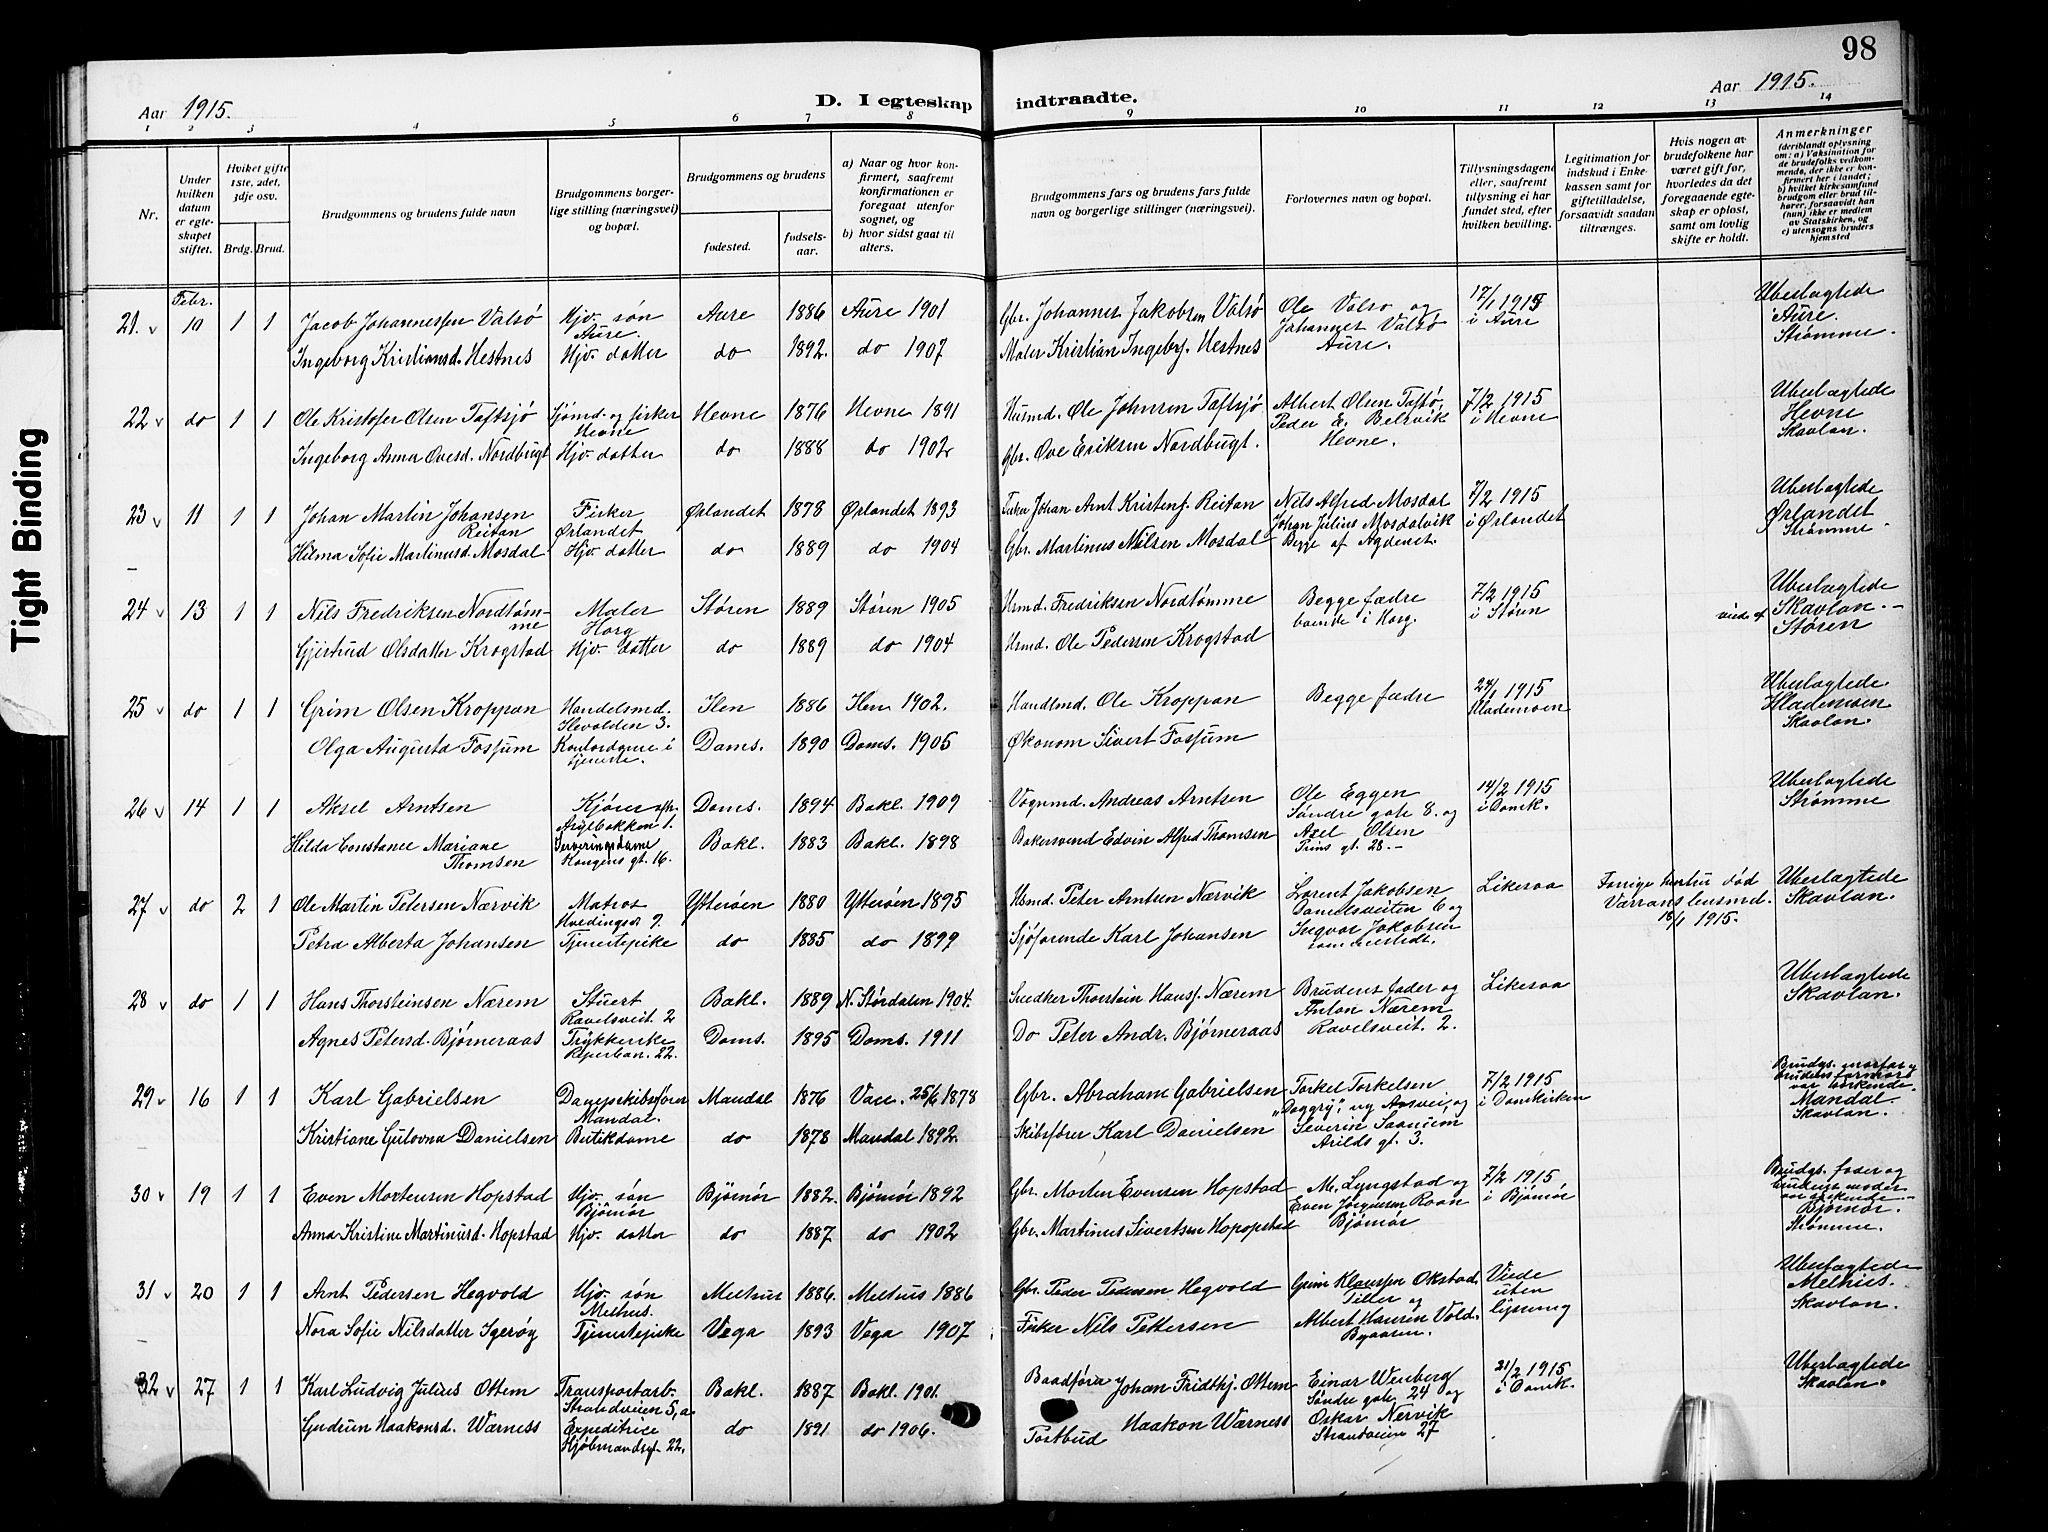 98
Tight Binding
Aar 1915.
D. I egteskap indtraadte.
Aar 1915.
1 2 3 4 5 6 7 8 9 10 11 12 13 14
Nr.
Under hvilken datum er egteskapet stiftet.
Hviket gifte 1ste, 2det, 3dje osv.
Brdg. Brud.
Brudgommens og brudens fulde navn
Brudgommens borgerlige stilling (næringsvei) og bopæl.
Brudgommens og brudens
fødested.
fødselsaar.
a) Naar og hvor konfirmert, saafremt konfirmationen er foregaat utenfor sognet, og
b) hvor sidst gaat til alters.
Brudgommens fars og brudens fars fulde navn og borgerlige stillinger (næringsvei).
Forlovernes navn og bopæl.
Tillysningsdagene eller, saafremt tillysning ei har fundet sted, efter hvilken bevilling.
Legitimation for indskud i Enkekassen samt for giftetilladelse, forsaavidt saadan tiltrænges.
Hvis nogen av brudefolkene har været gift før, hvorledes da det foregaaende egteskap er opløst, samt om lovlig skifte er holdt.
Anmerkninger (deriblandt oplysning om: a) Vaksination for de brudefolks vedkommende, der ikke er konfirmert her i landet; b) hvilket kirkesamfund brudgom eller brud tilhører, forsaavidt han (hun) ikke er medlem av Statskirken, og c) utensogns bruders hjemsted
Febr.
21. 10 1 1 Jacob Johannessen Valsø Hjv. søn Aure 1886 Aure 1901 Gbr. Johannes Jakobsen Valsø Ole Valsø og 17/1 1915 Uberlagtede
Aure. Johannes Valsø i Aure Aure.
Ingeborg Kristiansd. Hestnes Hjv. datter do 1892. do 1907 Maler Kristian Ingebr. Hestnes Aure. Strømme.
22 do 1 1 Ole Kristofer Olsen Taftsjø Sjømd. og fisker Hevne 1876 Hevne 1891 Husmd. Ole Johnsen Taftsjø Albert Olsen Taftsø, 7/2 1915 Uberlagtede
Hevne Peder E. Belsvik i Hevne Hevne
Ingeborg Anna Ovesd. Nordbugt Hjv. datter do 1888 do 1902 Gbr. Ove Eriksen Nordbugt. Hevne. Skavlan.
23 11 1 1 Johan Martin Johansen Fisker Ørlandet 1878 Ørlandet 1893 Fisker Johan Arnt Kristens. Reitan Nils Alfred Mosdal 7/2 1915 Uberlagtede
Reitan Ørlandet Johan Julius Mosdalvik i Ørlandet Ørlandet
Hilma Sofie Martinusd. Mosdal Hjv. datter do 1889 do 1904 Gbr. Martinus Nilsen Mosdal Begge af Agdenes. Strømme.
24 13 1 1 Nils Fredriksen Nordtømme Maler Støren 1889 Støren 1905 Husmd. Fredriksen Nordtømme Begge fædre 7/2 1915 Uberlagtede
Horg boende i Horg. i Støren viede af Skavlan.
Gjertrud Olsdatter Krogstad Hjv. datter do 1889 do 1904 Husmd. Ole Pedersen Krogstad Støren
25 do 1 1 Grim Olsen Kroppan Handelsmd. Ilen 1886 Ilen 1902. Handlmd. Ole Kroppan Begge fædre 24/1 1915 Uberlagtede
Ilevolden 3. Hlademoen Hlademoen
Olga Augusta Fossum Kontordame i tjeneste. Doms. 1890 Doms. 1905 Økonom Sivert Fossum Skavlan.
26 14 1 1 Aksel Arntsen Doms. 1894 Bakl. 1909 Vognmd. Andreas Arntsen Ole Eggen 14/2 1915 Uberlagtede
Søndre gate 8. og i Domk. Strømme
Hilda Constance Mariane Thomsen Serveringsdame Kongens gt. 16. Bakl. 1883 Bakl. 1898 Bakersvend Edvin Alfred Thomsen Axel Olsen
Prins gt. 28.
27 do 2 1 Ole Martin Petersen Nærvik Matros Ytterøen 1880 Ytterøen 1895 Husmd. Peter Arntsen Nærvik Lorent Jakobsen Likesaa Forrige hustru død Uberlagtede
Hvedingsv. 9. Danielsveiten 6 og Værrans lensmd. Skavlan.
Petra Alberta Johansen Tjenestepike do 1885 do 1899 Sjøfarende Karl Johansen Ingvar Jakobsen 18/1 1915.
sammesteds.
28 do 1 1 Hans Thorsteinsen Nærem Stuert Bakl. 1889 N. Størdalen 1904. Snedker Thorstein Hans. Nærem Brudens fader og Likesaa Uberlagtede
Ravelsveit. 2 Anton Nærem Skavlan.
Agnes Petersd. Bjørneraas Trykkerske Reperban. 22. Doms. 1895 Doms. 1911 Do Peter Andr. Bjørneraas Ravelsveit. 2.
29 16 1 1 Karl Gabrielsen Mandal 1876 25/6 1878 Gbr. Abraham Gabrielsen Torkel Torkelsen 7/2 1915
Mandal. "Daggry", ny Aasvei, og i Domkirken
Kristiane Gulovna Danielsen Butikdame do 1878 Mandal 1892. Skibsfører Karl Danielsen Severin Saanum Mandal.
Arilds gt. 3. Skavlan.
30 19 1 1 Even Mortensen Hopstad Hjv. søn Bjørnør 1882. Bjørnør 1892 Gbr. Morten Evensen Hopstad M. Lyngstad og 7/2 1915 Brudgs. fader og
Bjørnør Even Jørgensen Roan i Bjørnør brudens moder
Anna Kristine Martinusd. Hopstad Hjv. datter do 1887 do 1902 Gbr. Martinus Sivertsen Hopopstad Bjørnør Bjørnør.
Strømme.
31 20 1 1 Arnt Pedersen Hegvold Hjv. søn Melhus 1886. Melhus 1886 Gbr. Peder Pedersen Hegvold Grim Klaussen Okstad, Viede Uberlagtede
Melhus. Tiller og uten Melhus.
Nora Sofie Nilsdatter Igerøy Tjenestepike Vega 1893 Vega 1907 Fisker Nils Pettersen Albert Hansen Vold. lysning Skavlan.
Byaasen.
32 27 1 1 Karl Ludvig Julius Ottem Transportarb. Bakl. 1887 Bakl. 1901. Baadfører Johan Fridthj. Ottem Einar Wenberg 21/2 1915 Uberlagtede
Strandveien 5, a Søndre gate 24 og i Domk. Skavlan.
Gudrun Haakonsd. Wærness Expeditrice do 1891 do 1906. Postbud Haakon Wærness Oskar Nervik
Kjøbmandsgt. 22. Strandveien 27